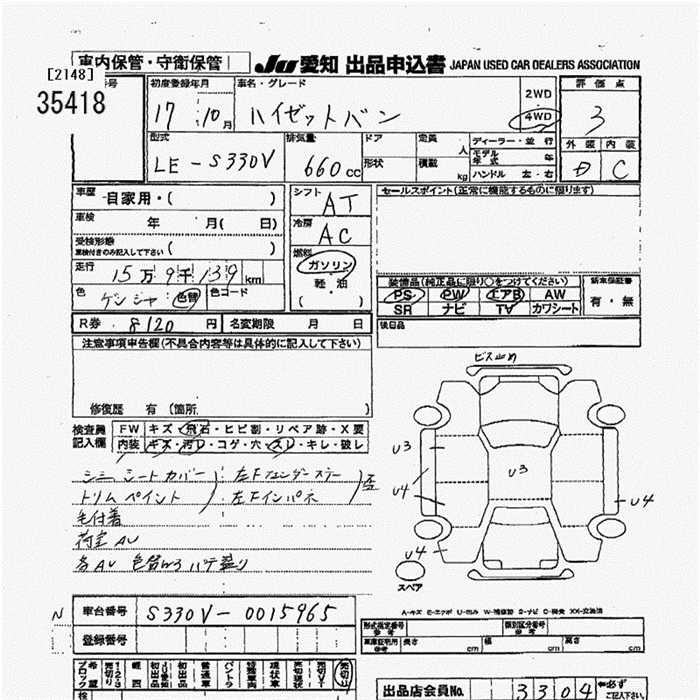 車内保管・守衛保管
JU 愛知 出品申込書 JAPAN USED CAR DEALERS ASSOCIATION
[2148]
35418
初度登録年月 車名・グレード 2WD 評価点
17 10月 ハイゼットバン 4WD 3
型式 排気量 ドア 定員 人 ディーラー・並行 外装 内装
LE-S330V 660cc 形状 積載 kg モデル年式 年 D C
ハンドル 左・右
車歴 自家用・( ) シフト AT セールスポイント(正常に機能するものに限ります)
車検 年 月( 日) 冷房 AC
受検形態 車検付きのみ記入して下さい ( )
燃料 ガソリン
軽・油
( )
走行 15万9千139km
装備品(純正品に限り○をつけてください) 新車保証書
色 ゲンシャ 色替 色コード PS PW エアB AW 有・無
SR ナビ TV カワシート
R券 8120円 名変期限 月 日 後日品
注意事項申告欄(不具合内容等は具体的に記入して下さい)
修復歴 有 (箇所 )
ビス止め
検査員記入欄 FW キズ・飛石・ヒビ割・リペア跡・X要
内装 キズ・汚レ・コゲ・穴・スレ・キレ・破レ
シミ シートカバー 左下フェンダーステー
トリム ペイント 左下インパネ
毛付着
荷室 AU
各AU 色替W3 ハテ盛り
U3
U3
U4
U4
U4
スペア
A-キズ E-エクボ U-凹み
N 車台番号 S330V-0015965
登録番号
形式指定番号 参考 類別区分番号 参考
車庫証明用 参考 長さ cm 幅 cm 高さ cm
出品店会員No. 3304 必ずご記入下さい